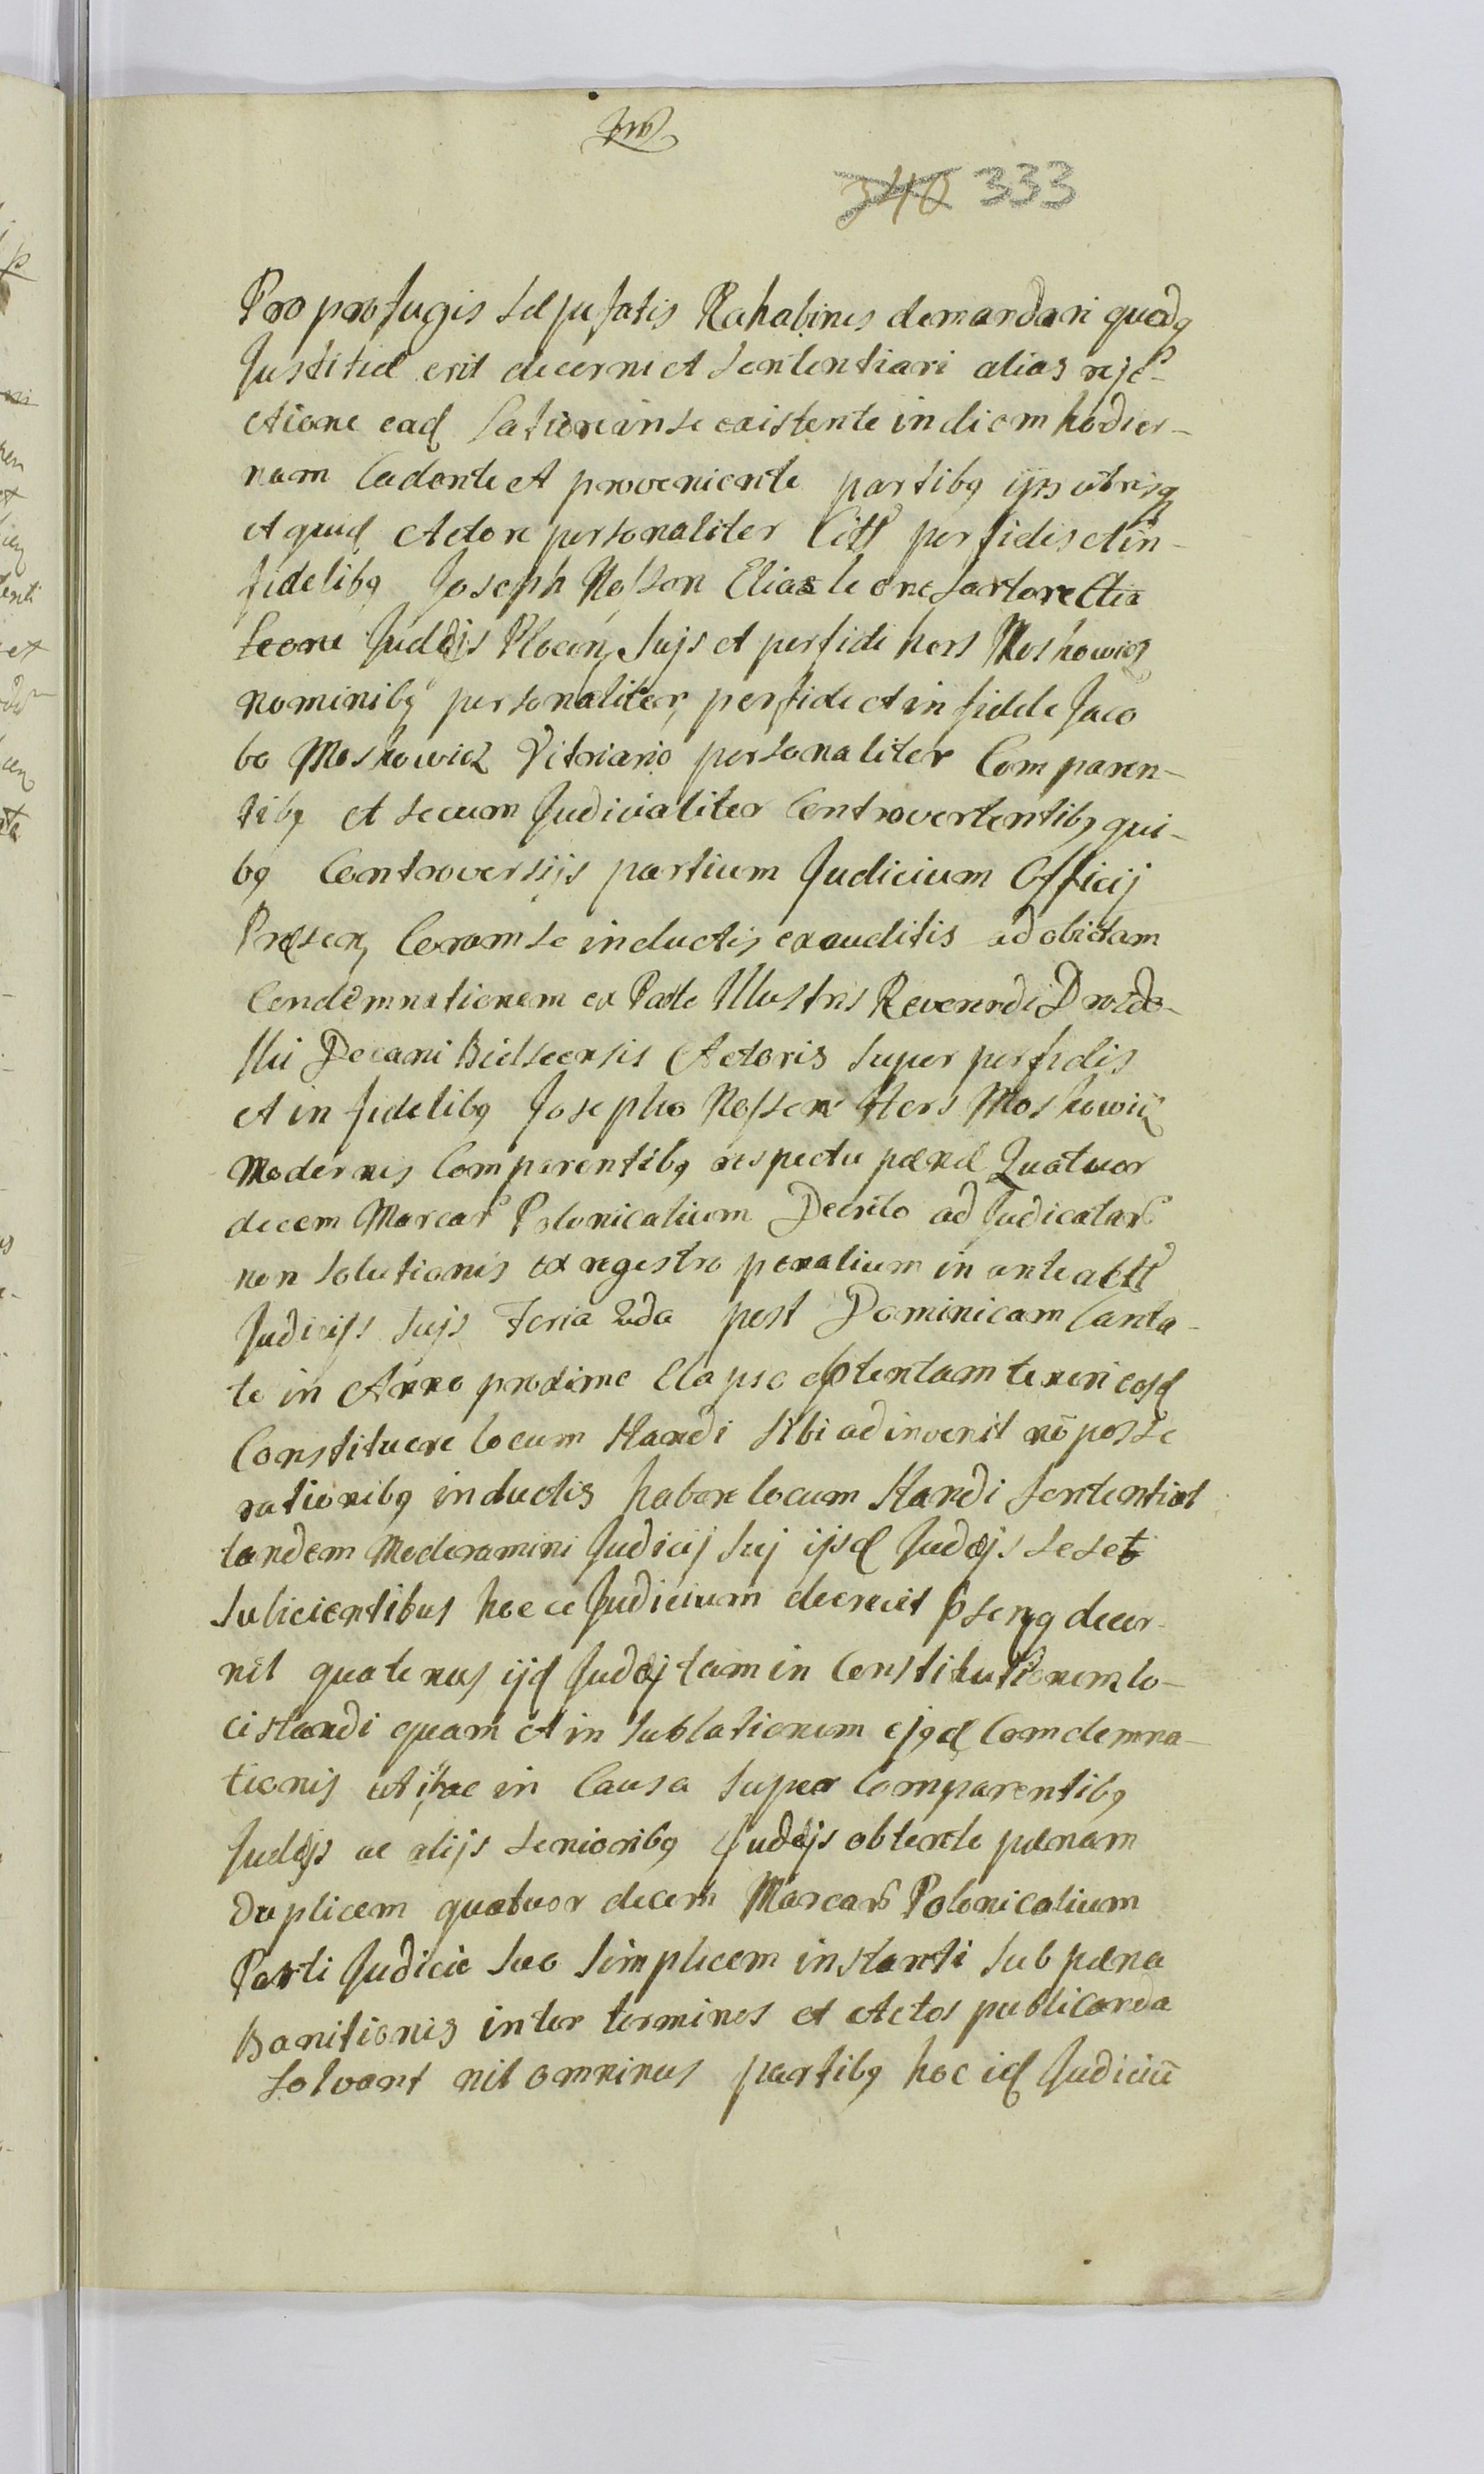 340 333
Pro profugis sese Rahabines demandari quodq
Justitiæ erit decerni et Sententiari alias reje-
ctione ead Satione in se existente in diem hodier-
nam Cadente et proveniente partibq ijs utrisq
et quid Actore personaliter Citt perfidis et in-
fidelibq Joseph Nosson Elia Leone Sartore Elia
Leone Judæis Plocen suis et perfidi hers Moskowicz
nominibq personaliter, perfide et infidele Jaco
bo Moskowicz Vitriario personaliter Comparen-
tibq et secum Judicialiter Controvertentibq qui-
bq Controversijs partium Judicium Officij
Præsen Coram se inductis exauditis ad obictam
Condemnationem ex Parte Illustris Reverendi Drozdo-
ski Decani Bielscensis Actoris super perfidis
et infidelibq Josepho Nossen Hers Moskowicz
Modernis Comparentibq respectu pœnæ Quatuor
decem Marcar Polonicalium Decreto adjudicatar
non Solutionis ex regestro penalium in anteactt
Judicijs suis Feria 2da post Dominicam Canta-
te in Anno proxime Elapso obtentam teneri eosd
Constituere locum Standi sibi adinvenit nō posse
rationibq inductis habere locum Standi Sententiat
tandem Moderamini Judicij sui ijsd Judæis sese
subicientibus hocce Judicium decrevit psenq decer-
nit quatenus ijd Judæi tam in Constitutionem lo-
ci standi quam et in Sublationem ejqd Comdemna-
tionis uti hac in Causa super Comparentibq
Judæis ac alijs Senioribq Judæis obtente pœnam
Duplicem quatuor decem Marcar Polonicalium
Parti Judicio suo Simplicem instanti sub pœna
Banitionis inter terminos et Actos publicanda
Solvant nil ominus partibq hoc id Judiciū